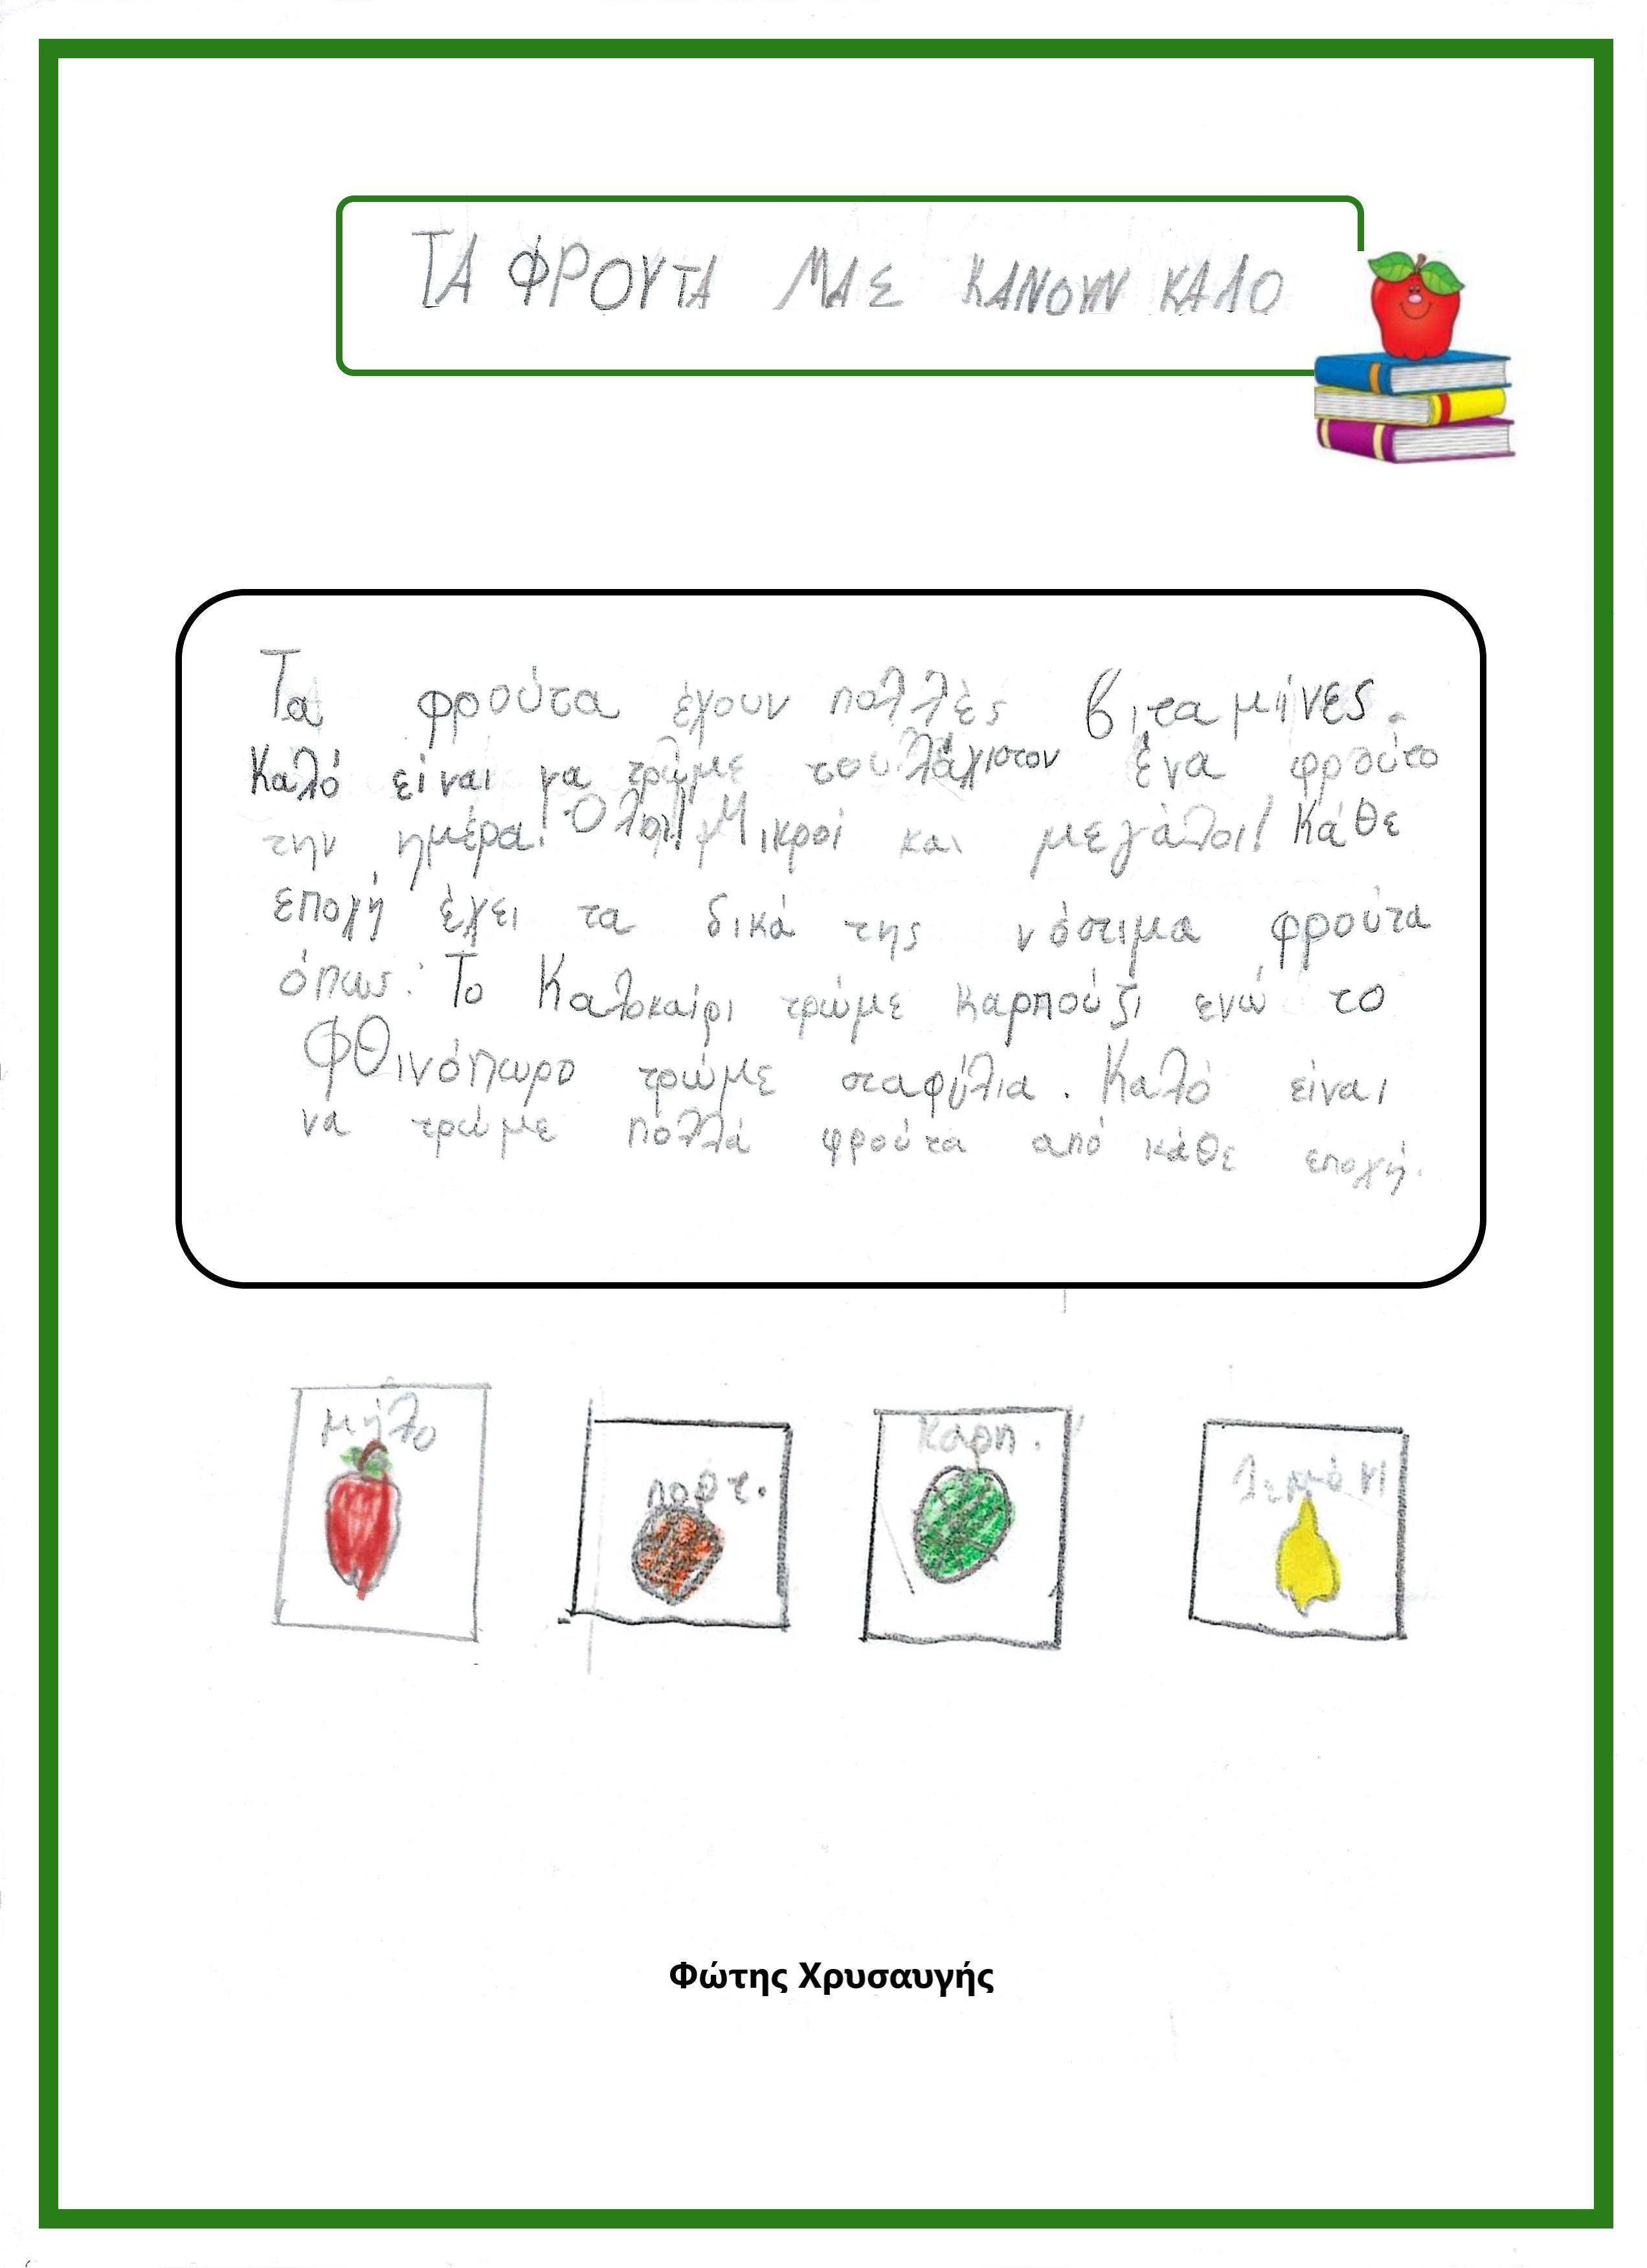 ΤΑ ΦΡΟΥΤΑ ΜΑΣ ΚΑΝΟΥΝ ΚΑΛΟ
Τα φρούτα έχουν πολλές βιταμίνες.
Καλό είναι να τρώμε τουλάχιστον ένα φρούτο
την ημέρα! Όλοι! Μικροί και μεγάλοι! Κάθε
εποχή έχει τα δικά της νόστιμα φρούτα
όπως: Το Καλοκαίρι τρώμε καρπούζι ενώ το
Φθινόπωρο τρώμε σταφύλια. Καλό είναι
να τρώμε πολλά φρούτα από κάθε εποχή.
μήλο πορτ. καρπ. λεμόνι
Φώτης Χρυσαυγής